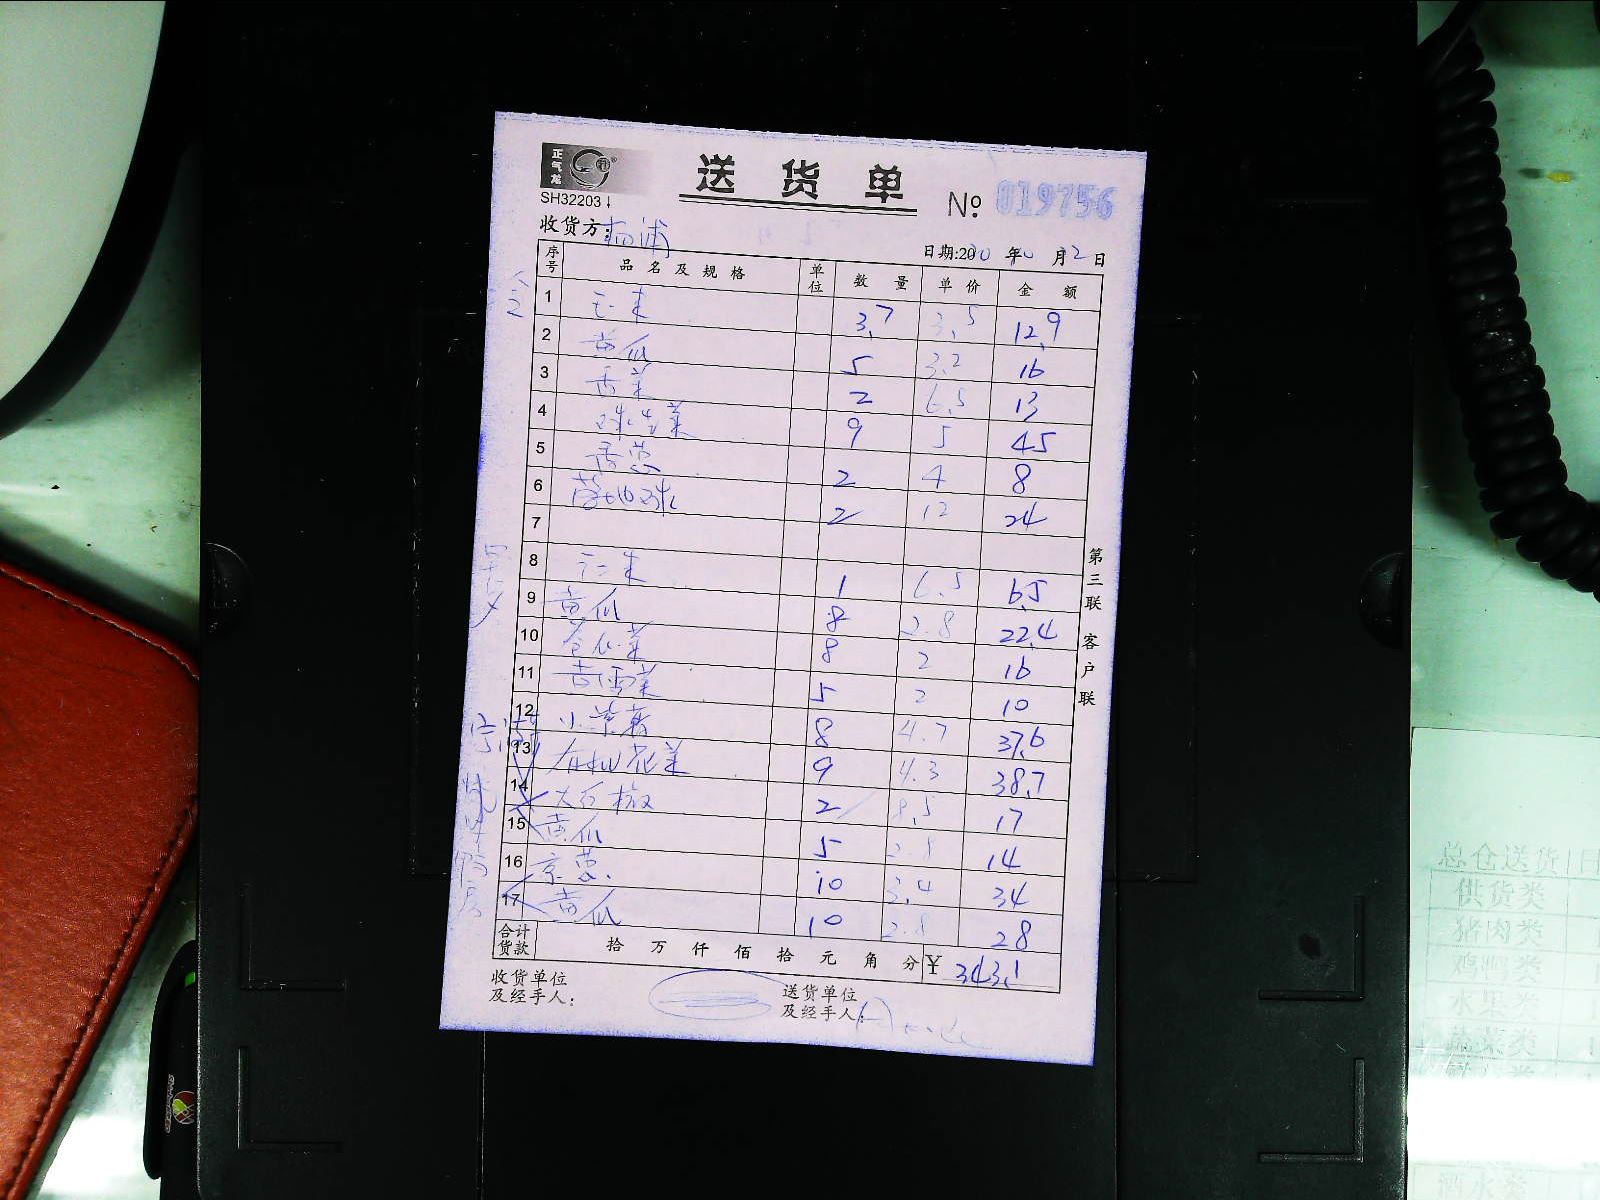 正气龙
SH32203
送货单
№ 019756
收货方:杨浦
日期:20 年 月2日
序号 品名及规格 单位 数量 单价 金额
1 玉米 3.7 3.5 12.9
2 黄瓜 5 3.2 16
3 香菜 2 6.5 13
4 球生菜 9 5 45
5 香葱 2 4 8
6 2 12 24
7
8 玉米 1 6.5 6.5
9 黄瓜 8 2.8 22.4
10 卷心菜 8 2 16
11 5 2 10
12 小 8 4.7 37.6
13 有机花菜 9 4.3 38.7
14 大石椒 2 8.5 17
15 黄瓜 5 2.8 14
16 京葱 10 3.4 34
17 黄瓜 10 2.8 28
合计货款 拾 万 仟 佰 拾 元 角 分 ¥ 343.1
收货单位
及经手人:
送货单位
及经手人:
第三联 客户联
总仓送货
供货类
猪肉类
鸡鸭类
蔬菜类
酒水类